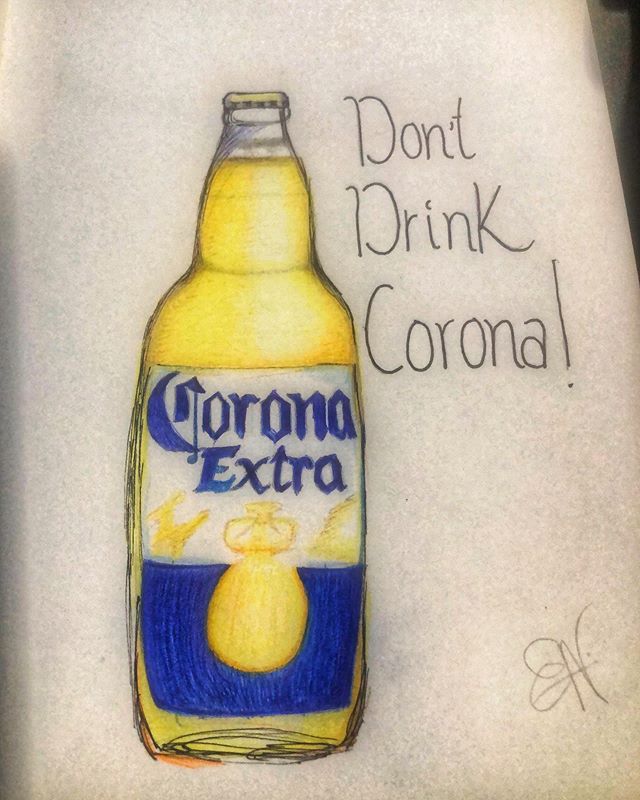 Don't
Drink
Corona!
Corona
Extra